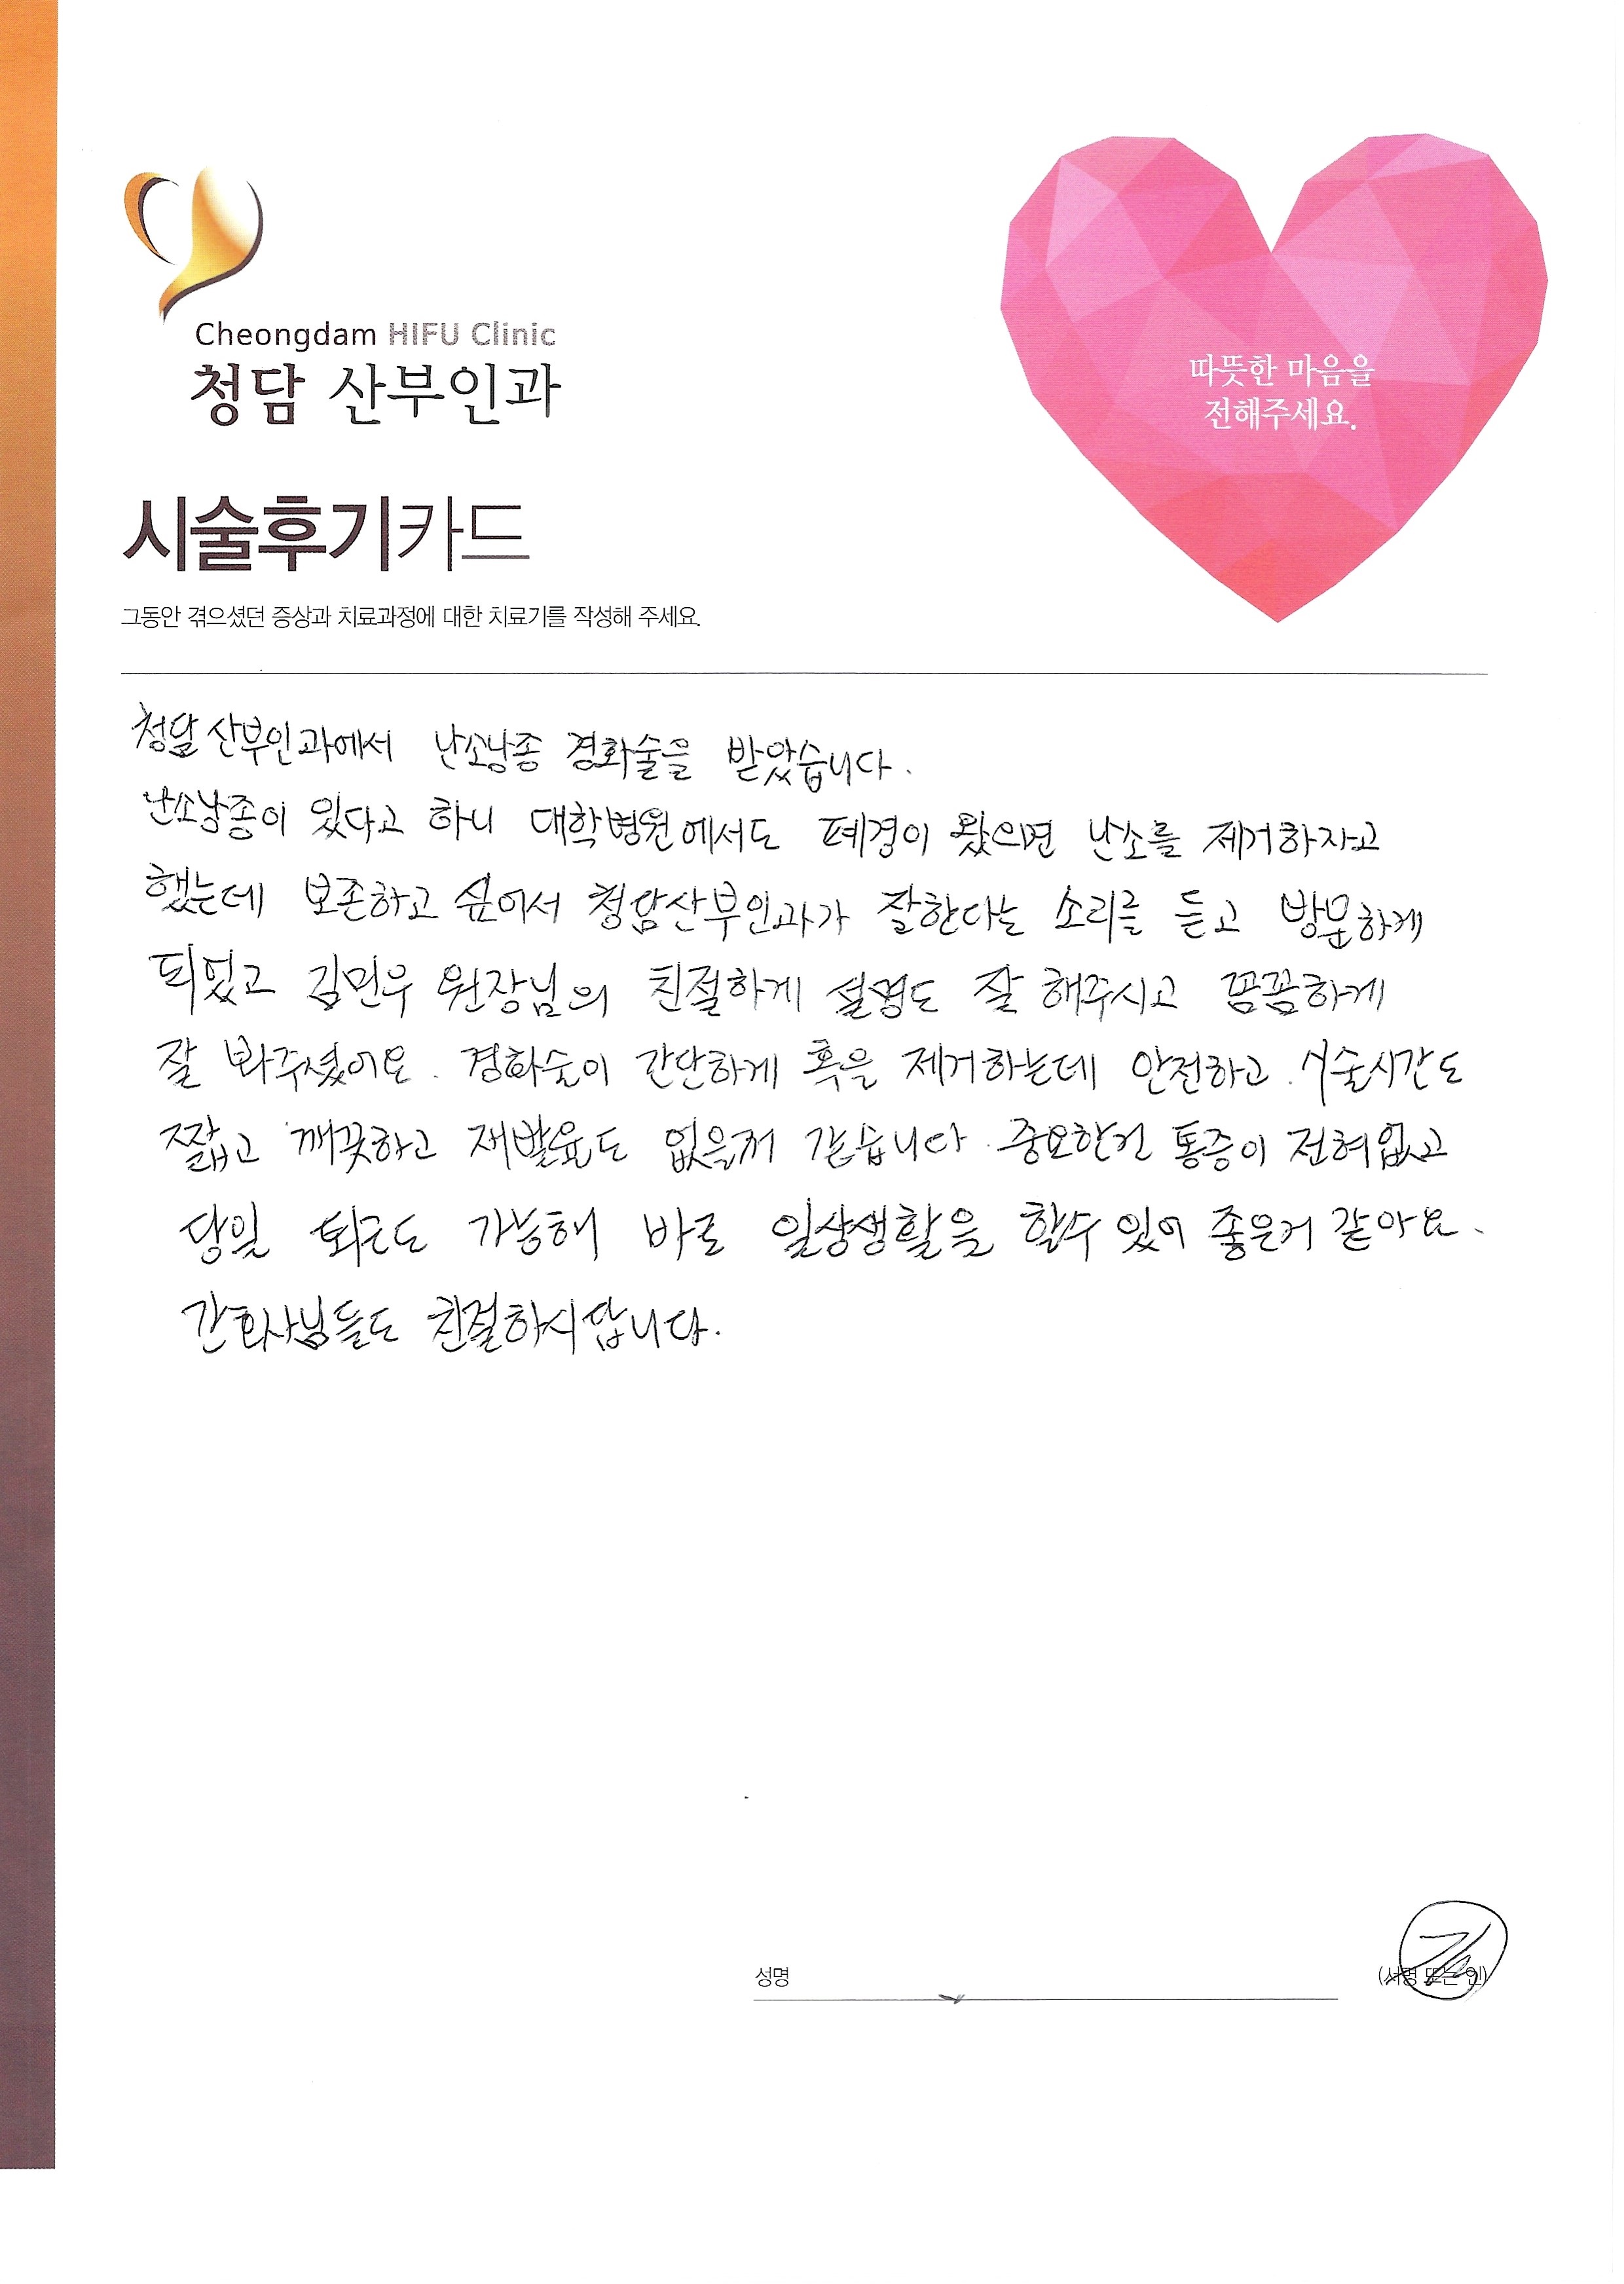 Cheongdam HIFU Clinic
청담 산부인과
따뜻한 마음을
전해주세요.
시술후기카드
그동안 겪으셨던 증상과 치료과정에 대한 치료기를 작성해 주세요.
청담 산부인과에서 난소낭종 경화술을 받았습니다.
난소낭종이 있다고 하니 대학병원에서도 폐경이 왔으면 난소를 제거하자고
했는데 보존하고 싶어서 청담산부인과가 잘한다는 소리를 듣고 방문하게
되었고 김민우 원장님의 친절하게 설명도 잘 해주시고 꼼꼼하게
잘 봐주셨어요. 경화술이 간단하게 혹을 제거하는데 안전하고. 시술시간도
짧고 깨끗하고 재발율도 없을꺼 같습니다. 중요한건 통증이 전혀없고
당일 퇴근도 가능해 바로 일상생활을 할수 있어 좋은거 같아요.
간호사님들도 친절하시답니다.
성명
(서명 또는 인)